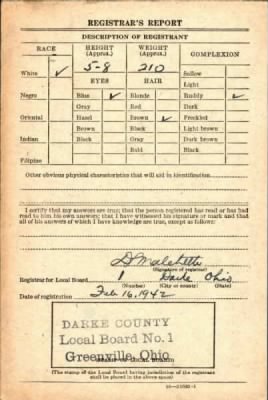 REGISTRAR'S REPORT
DESCRIPTION OF REGISTRANT
RACE HEIGHT (Approx.) WEIGHT (Approx.) COMPLEXION
White ✓ 5-8 210 Sallow
EYES HAIR Light
Negro Blue ✓ Blonde Ruddy ✓
Gray Red Dark
Oriental Hazel Brown ✓ Freckled
Brown Black Light brown
Indian Black Gray Dark brown
Bald Black
Filipino
Other obvious physical characteristics that will aid in identification
I certify that my answers are true; that the person registered has read or has had
read to him his own answers; that I have witnessed his signature or mark and that
all of his answers of which I have knowledge are true, except as follows:
(Signature of registrar)
Registrar for Local Board 1 Darke Ohio
(Number) (City or county) (State)
Date of registration Feb 16, 1942
DARKE COUNTY
Local Board No. 1
Greenville, Ohio
(STAMP OF LOCAL BOARD)
(The stamp of the Local Board having jurisdiction of the registrant
shall be placed in the above space)